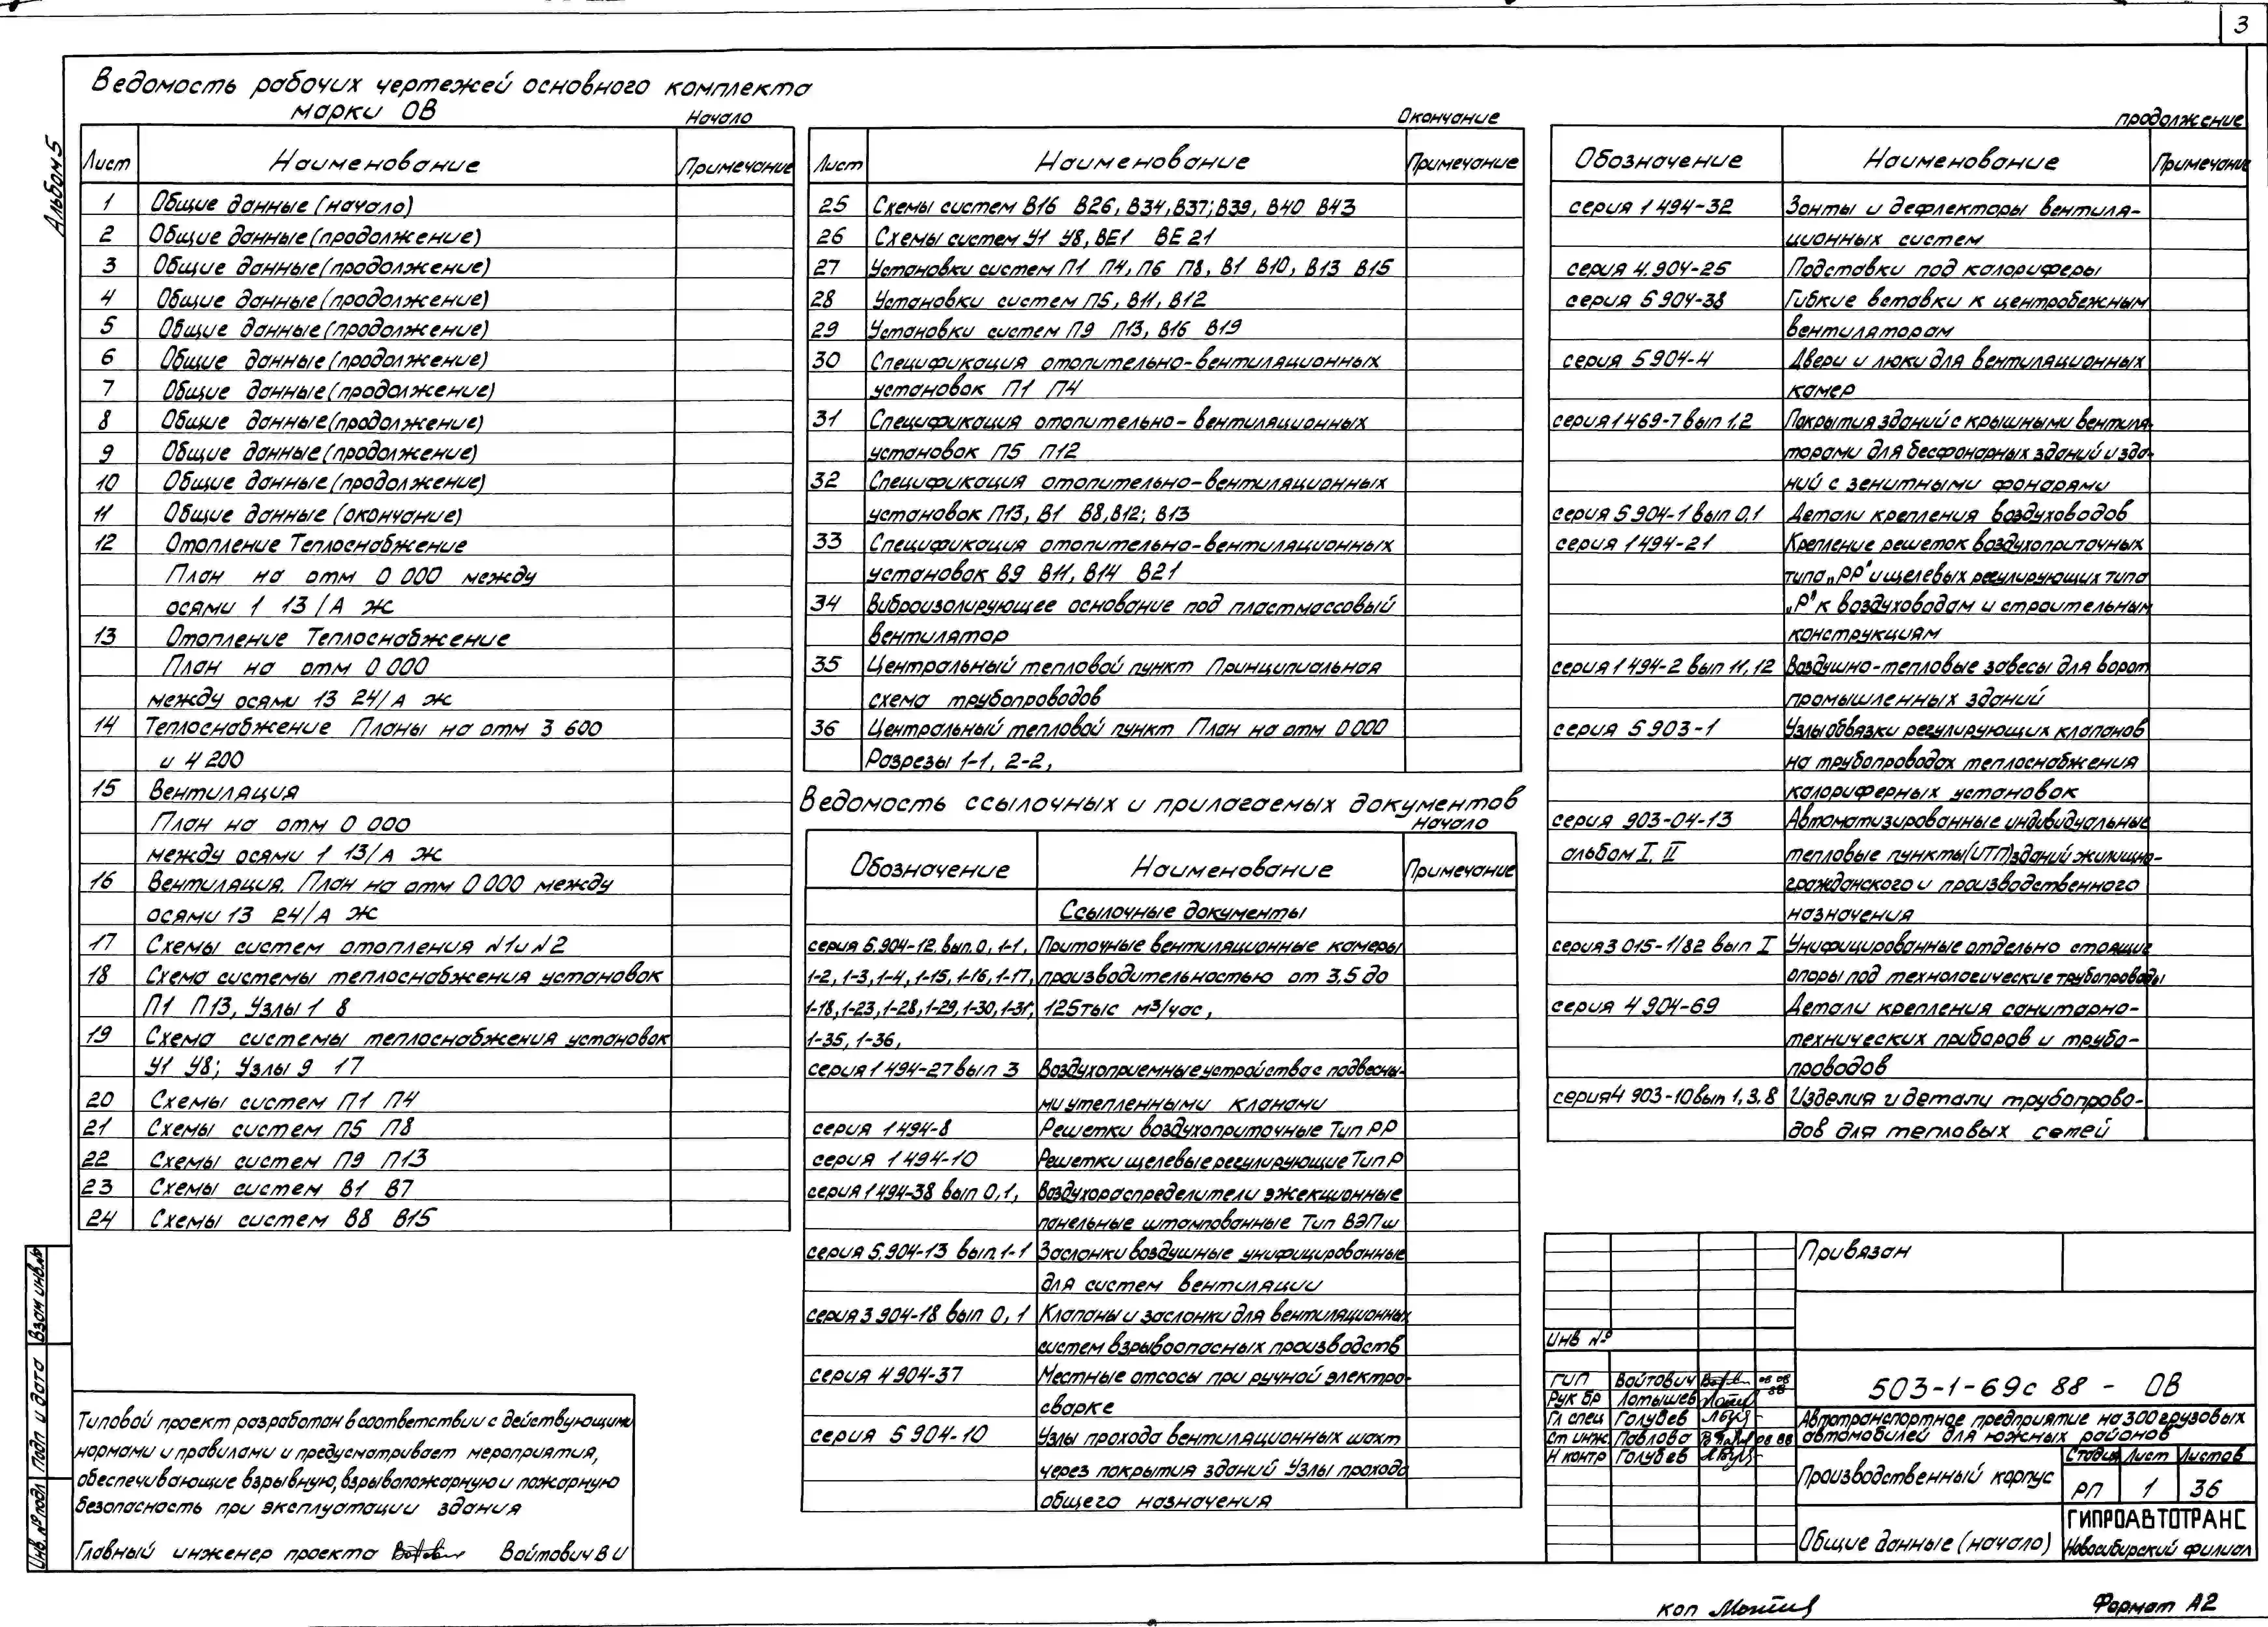 3
Альбом 5
Ведомость рабочих чертежей основного комплекта
марки ОВ
Начало
Лист Наименование Примечание
1 Общие данные (начало)
2 Общие данные (продолжение)
3 Общие данные (продолжение)
4 Общие данные (продолжение)
5 Общие данные (продолжение)
6 Общие данные (продолжение)
7 Общие данные (продолжение)
8 Общие данные (продолжение)
9 Общие данные (продолжение)
10 Общие данные (продолжение)
11 Общие данные (окончание)
12 Отопление Теплоснабжение
План на отм 0 000 между
осями 1 13/А Ж
13 Отопление Теплоснабжение
План на отм 0 000
между осями 13 24/А Ж
14 Теплоснабжение Планы на отм 3 600
и 4 200
15 Вентиляция
План на отм 0 000
между осями 1 13/А Ж
16 Вентиляция. План на отм 0 000 между
осями 13 24/А Ж
17 Схемы систем отопления N1 и N2
18 Схема системы теплоснабжения установок
П1 П13, Узлы 1 8
19 Схема системы теплоснабжения установок
У1 У8; Узлы 9 17
20 Схемы систем П1 П4
21 Схемы систем П5 П8
22 Схемы систем П9 П13
23 Схемы систем В1 В7
24 Схемы систем В8 В15
Окончание
Лист Наименование Примечание
25 Схемы систем В16 В26, В34, В37; В39, В40 В43
26 Схемы систем У1 У8, ВЕ1 ВЕ21
27 Установки систем П1 П4, П6 П8, В1 В10, В13 В15
28 Установки систем П5, В11, В12
29 Установки систем П9 П13, В16 В19
30 Спецификация отопительно-вентиляционных
установок П1 П4
31 Спецификация отопительно-вентиляционных
установок П5 П12
32 Спецификация отопительно-вентиляционных
установок П13, В1 В8, В12; В13
33 Спецификация отопительно-вентиляционных
установок В9 В11, В14 В21
34 Виброизолирующее основание под пластмассовый
вентилятор
35 Центральный тепловой пункт Принципиальная
схема трубопроводов
36 Центральный тепловой пункт План на отм 0 000
Разрезы 1-1, 2-2,
Ведомость ссылочных и прилагаемых документов
Начало
Обозначение Наименование Примечание
Ссылочные документы
серия 5.904-12. вып. 0, 1-1, Приточные вентиляционные камеры
1-2, 1-3, 1-4, 1-15, 1-16, 1-17, производительностью от 3,5 до
1-18, 1-23, 1-28, 1-29, 1-30, 1-31, 125 тыс м³/час,
1-35, 1-36,
серия 1 494-27 вып 3 Воздухоприемные устройства с подвесны-
ми утепленными кланами
серия 1 494-8 Решетки воздухоприточные Тип РР
серия 1 494-10 Решетки щелевые регулирующие Тип Р
серия 1 494-38 вып 0, 1, Воздухораспределители эжекционные
панельные штампованные Тип ВЭПш
серия 5.904-13 вып. 1-1 Заслонки воздушные унифицированные
для систем вентиляции
серия 3 904-18 вып 0, 1 Клапаны и заслонки для вентиляционных
систем взрывоопасных производств
серия 4 904-37 Местные отсосы при ручной электро-
сварке
серия 5 904-10 Узлы прохода вентиляционных шахт
через покрытия зданий Узлы прохода
общего назначения
продолжение
Обозначение Наименование Примечание
серия 1 494-32 Зонты и дефлекторы вентиля-
ционных систем
серия 4.904-25 Подставки под калориферы
серия 5 904-38 Гибкие вставки к центробежным
вентиляторам
серия 5 904-4 Двери и люки для вентиляционных
камер
серия 1 469-7 вып 1,2 Покрытия зданий с крышными вентиля-
торами для бесфонарных зданий и зда-
ний с зенитными фонарями
серия 5 904-1 вып 0,1 Детали крепления воздуховодов
серия 1 494-21 Крепление решеток воздухоприточных
типа „РР" и щелевых регулирующих типа
„Р" к воздуховодам и строительным
конструкциям
серия 1 494-2 вып 11, 12 Воздушно-тепловые завесы для ворот
промышленных зданий
серия 5 903-1 Узлы обвязки регулирующих клапанов
на трубопроводах теплоснабжения
калориферных установок
серия 903-04-13 Автоматизированные индивидуальные
альбом I, II тепловые пункты (ИТП) зданий жилищно-
гражданского и производственного
назначения
серия 3 015-1/82 вып I Унифицированные отдельно стоящие
опоры под технологические трубопроводы
серия 4 904-69 Детали крепления санитарно-
технических приборов и трубо-
проводов
серия 4 903-10 вып 1, 3, 8 Изделия и детали трубопрово-
дов для тепловых сетей
Типовой проект разработан в соответствии с действующими
нормами и правилами и предусматривает мероприятия,
обеспечивающие взрывную, взрывопожарную и пожарную
безопасность при эксплуатации здания
Главный инженер проекта Войтович В И
Взам инв. №
Подп и дата
Инв. № подл
Привязан
Инв №
ГИП Войтович 08 08 88
Рук бр Латышев
Гл спец Голубев
Ст инж. Павлова 08 88
Н контр Голубев
503-1-69с 88 - ОВ
Автотранспортное предприятие на 300 грузовых
автомобилей для южных районов
Производственный корпус
Стадия Лист Листов
РП 1 36
Общие данные (начало)
ГИПРОАВТОТРАНС
Новосибирский филиал
коп
Формат А2